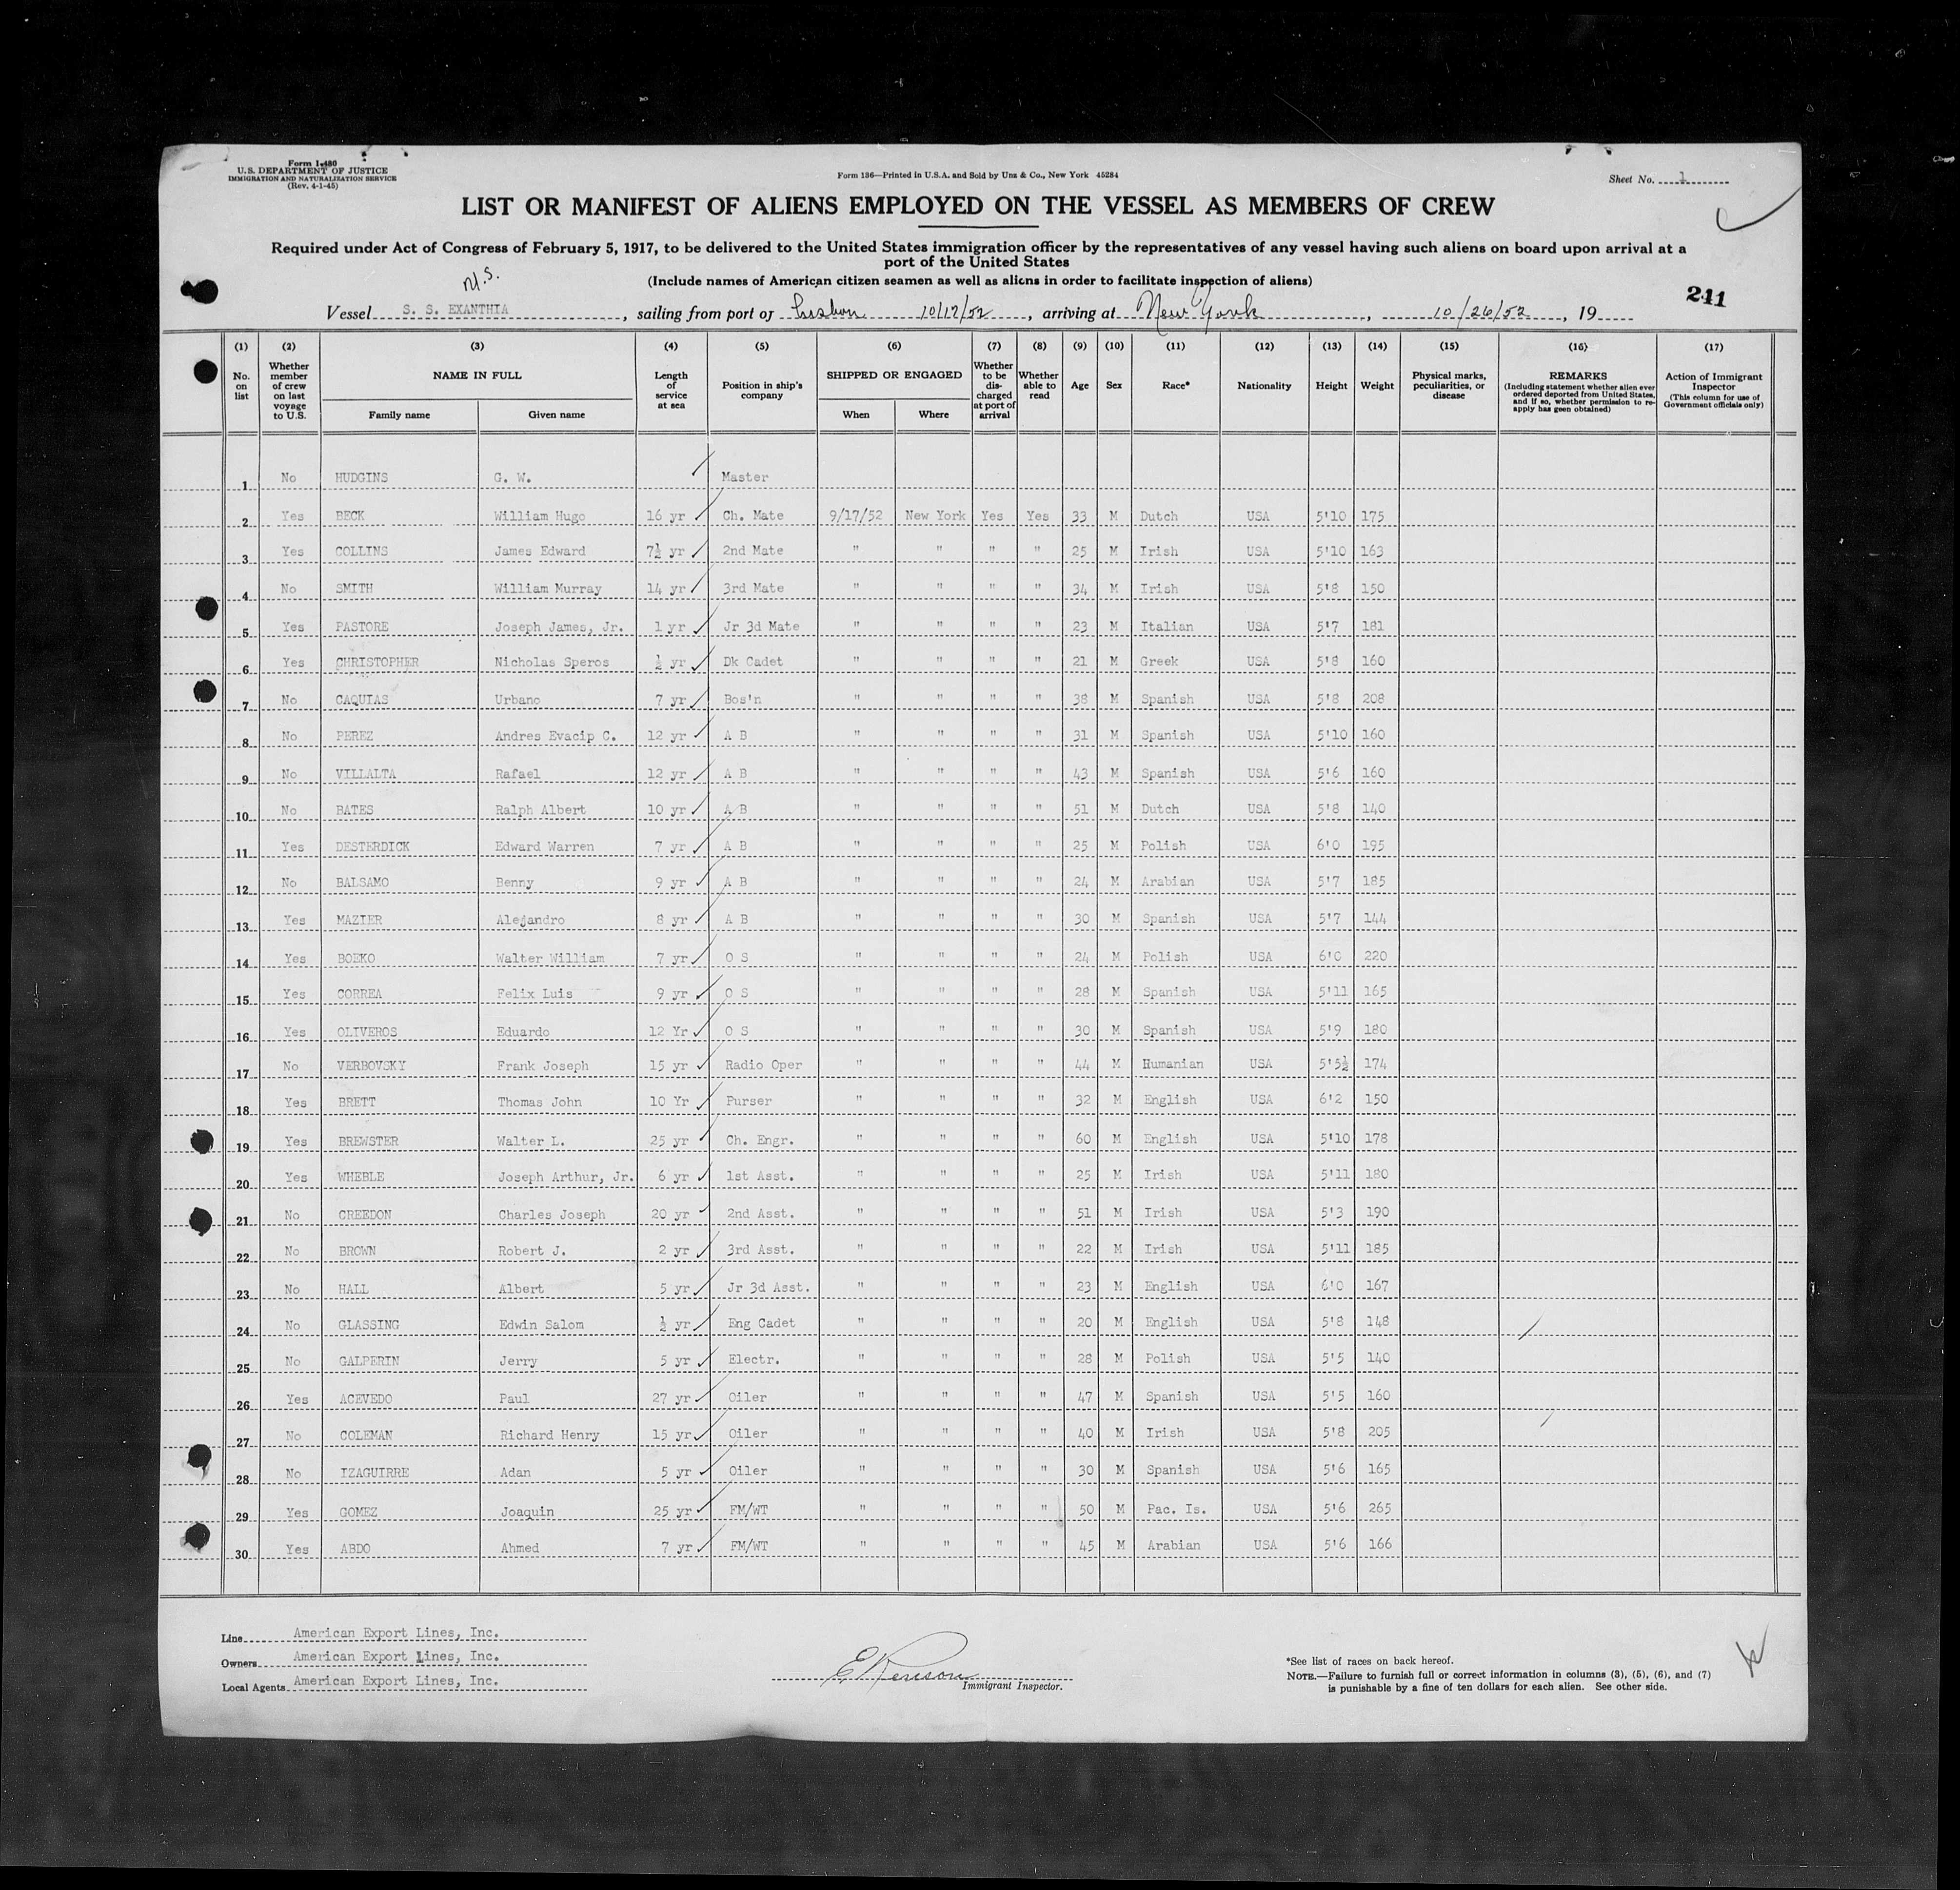 Form I-480
U.S. DEPARTMENT OF JUSTICE
IMMIGRATION AND NATURALIZATION SERVICE
(Rev. 4-1-45)
Form 136—Printed in U.S.A. and Sold by Unz & Co., New York 45284
Sheet No. 1
LIST OR MANIFEST OF ALIENS EMPLOYED ON THE VESSEL AS MEMBERS OF CREW
Required under Act of Congress of February 5, 1917, to be delivered to the United States immigration officer by the representatives of any vessel having such aliens on board upon arrival at a
port of the United States
(Include names of American citizen seamen as well as aliens in order to facilitate inspection of aliens)
211
Vessel S. S. EXANTHIA, sailing from port of Lisbon 10/17/52, arriving at New York, 10/26/52, 19
(1) (2) (3) (4) (5) (6) (7) (8) (9) (10) (11) (12) (13) (14) (15) (16) (17)
No. on list
Whether member of crew on last voyage to U.S.
NAME IN FULL
Family name Given name
Length of service at sea
Position in ship's company
SHIPPED OR ENGAGED
When Where
Whether to be discharged at port of arrival
Whether able to read
Age Sex Race* Nationality Height Weight
Physical marks, peculiarities, or disease
REMARKS
(Including statement whether alien ever ordered deported from United States, and if so, whether permission to re-apply has geen obtained)
Action of Immigrant Inspector
(This column for use of Government officials only)
1 No HUDGINS G. W. Master
2 Yes BECK William Hugo 16 yr Ch. Mate 9/17/52 New York Yes Yes 33 M Dutch USA 5'10 175
3 Yes COLLINS James Edward 7½ yr 2nd Mate " " " " 25 M Irish USA 5'10 163
4 No SMITH William Murray 14 yr 3rd Mate " " " " 34 M Irish USA 5'8 150
5 Yes PASTORE Joseph James, Jr. 1 yr Jr 3d Mate " " " " 23 M Italian USA 5'7 181
6 Yes CHRISTOPHER Nicholas Speros ½ yr Dk Cadet " " " " 21 M Greek USA 5'8 160
7 No CAQUIAS Urbano 7 yr Bos'n " " " " 38 M Spanish USA 5'8 208
8 No PEREZ Andres Evacip C. 12 yr A B " " " " 31 M Spanish USA 5'10 160
9 No VILLALTA Rafael 12 yr A B " " " " 43 M Spanish USA 5'6 160
10 No BATES Ralph Albert 10 yr A B " " " " 51 M Dutch USA 5'8 140
11 Yes DESTERDICK Edward Warren 7 yr A B " " " " 25 M Polish USA 6'0 195
12 No BALSAMO Benny 9 yr A B " " " " 24 M Arabian USA 5'7 185
13 Yes MAZIER Alejandro 8 yr A B " " " " 30 M Spanish USA 5'7 144
14 Yes BOEKO Walter William 7 yr O S " " " " 24 M Polish USA 6'0 220
15 Yes CORREA Felix Luis 9 yr O S " " " " 28 M Spanish USA 5'11 165
16 Yes OLIVEROS Eduardo 12 Yr O S " " " " 30 M Spanish USA 5'9 180
17 No VERBOVSKY Frank Joseph 15 yr Radio Oper " " " " 44 M Rumanian USA 5'5½ 174
18 Yes BRETT Thomas John 10 Yr Purser " " " " 32 M English USA 6'2 150
19 Yes BREWSTER Walter L. 25 yr Ch. Engr. " " " " 60 M English USA 5'10 178
20 Yes WHEBLE Joseph Arthur, Jr. 6 yr 1st Asst. " " " " 25 M Irish USA 5'11 180
21 No CREEDON Charles Joseph 20 yr 2nd Asst. " " " " 51 M Irish USA 5'3 190
22 No BROWN Robert J. 2 yr 3rd Asst. " " " " 22 M Irish USA 5'11 185
23 No HALL Albert 5 yr Jr 3d Asst. " " " " 23 M English USA 6'0 167
24 No GLASSING Edwin Salom ½ yr Eng Cadet " " " " 20 M English USA 5'8 148
25 No GALPERIN Jerry 5 yr Electr. " " " " 28 M Polish USA 5'5 140
26 Yes ACEVEDO Paul 27 yr Oiler " " " " 47 M Spanish USA 5'5 160
27 No COLEMAN Richard Henry 15 yr Oiler " " " " 40 M Irish USA 5'8 205
28 No IZAGUIRRE Adan 5 yr Oiler " " " " 30 M Spanish USA 5'6 165
29 Yes GOMEZ Joaquin 25 yr FM/WT " " " " 50 M Pac. Is. USA 5'6 265
30 Yes ABDO Ahmed 7 yr FM/WT " " " " 45 M Arabian USA 5'6 166
Line American Export Lines, Inc.
Owners American Export Lines, Inc.
Local Agents American Export Lines, Inc.
Immigrant Inspector.
*See list of races on back hereof.
NOTE.—Failure to furnish full or correct information in columns (3), (5), (6), and (7)
is punishable by a fine of ten dollars for each alien. See other side.